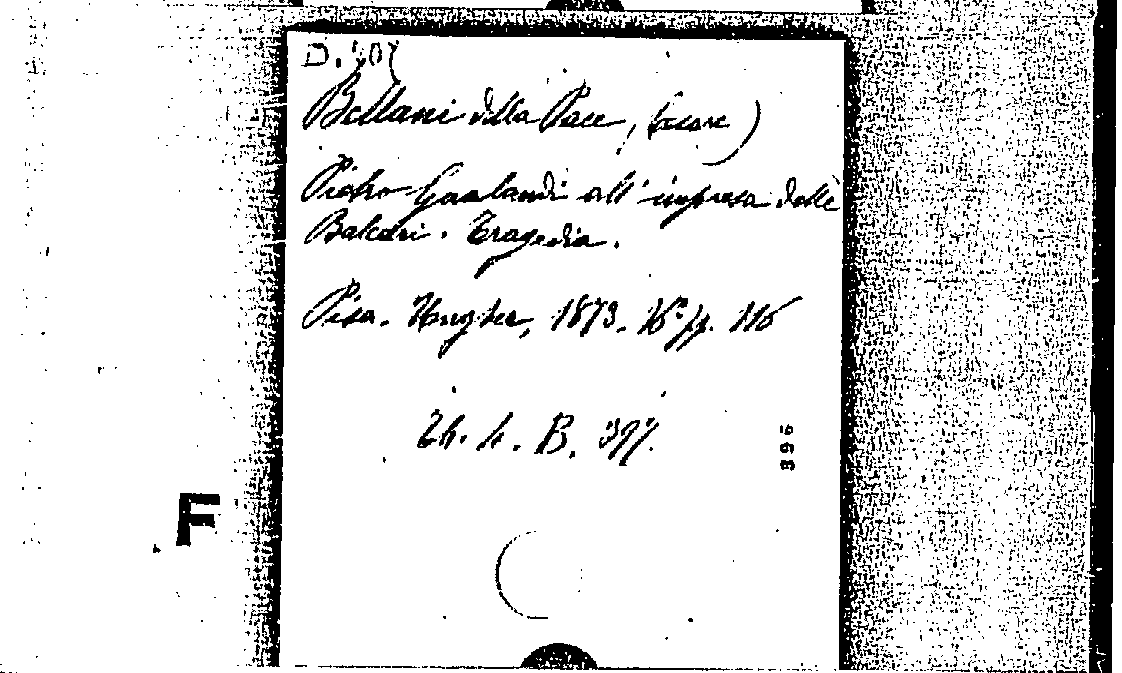 D. 407
Bellani della Pace, (Cesare)
Pietro Gualandi all'impresa delle
Baleari. Tragedia.
Pisa. Ungher, 1873. 16º pp. 116
26. 4. B. 397.
395
F